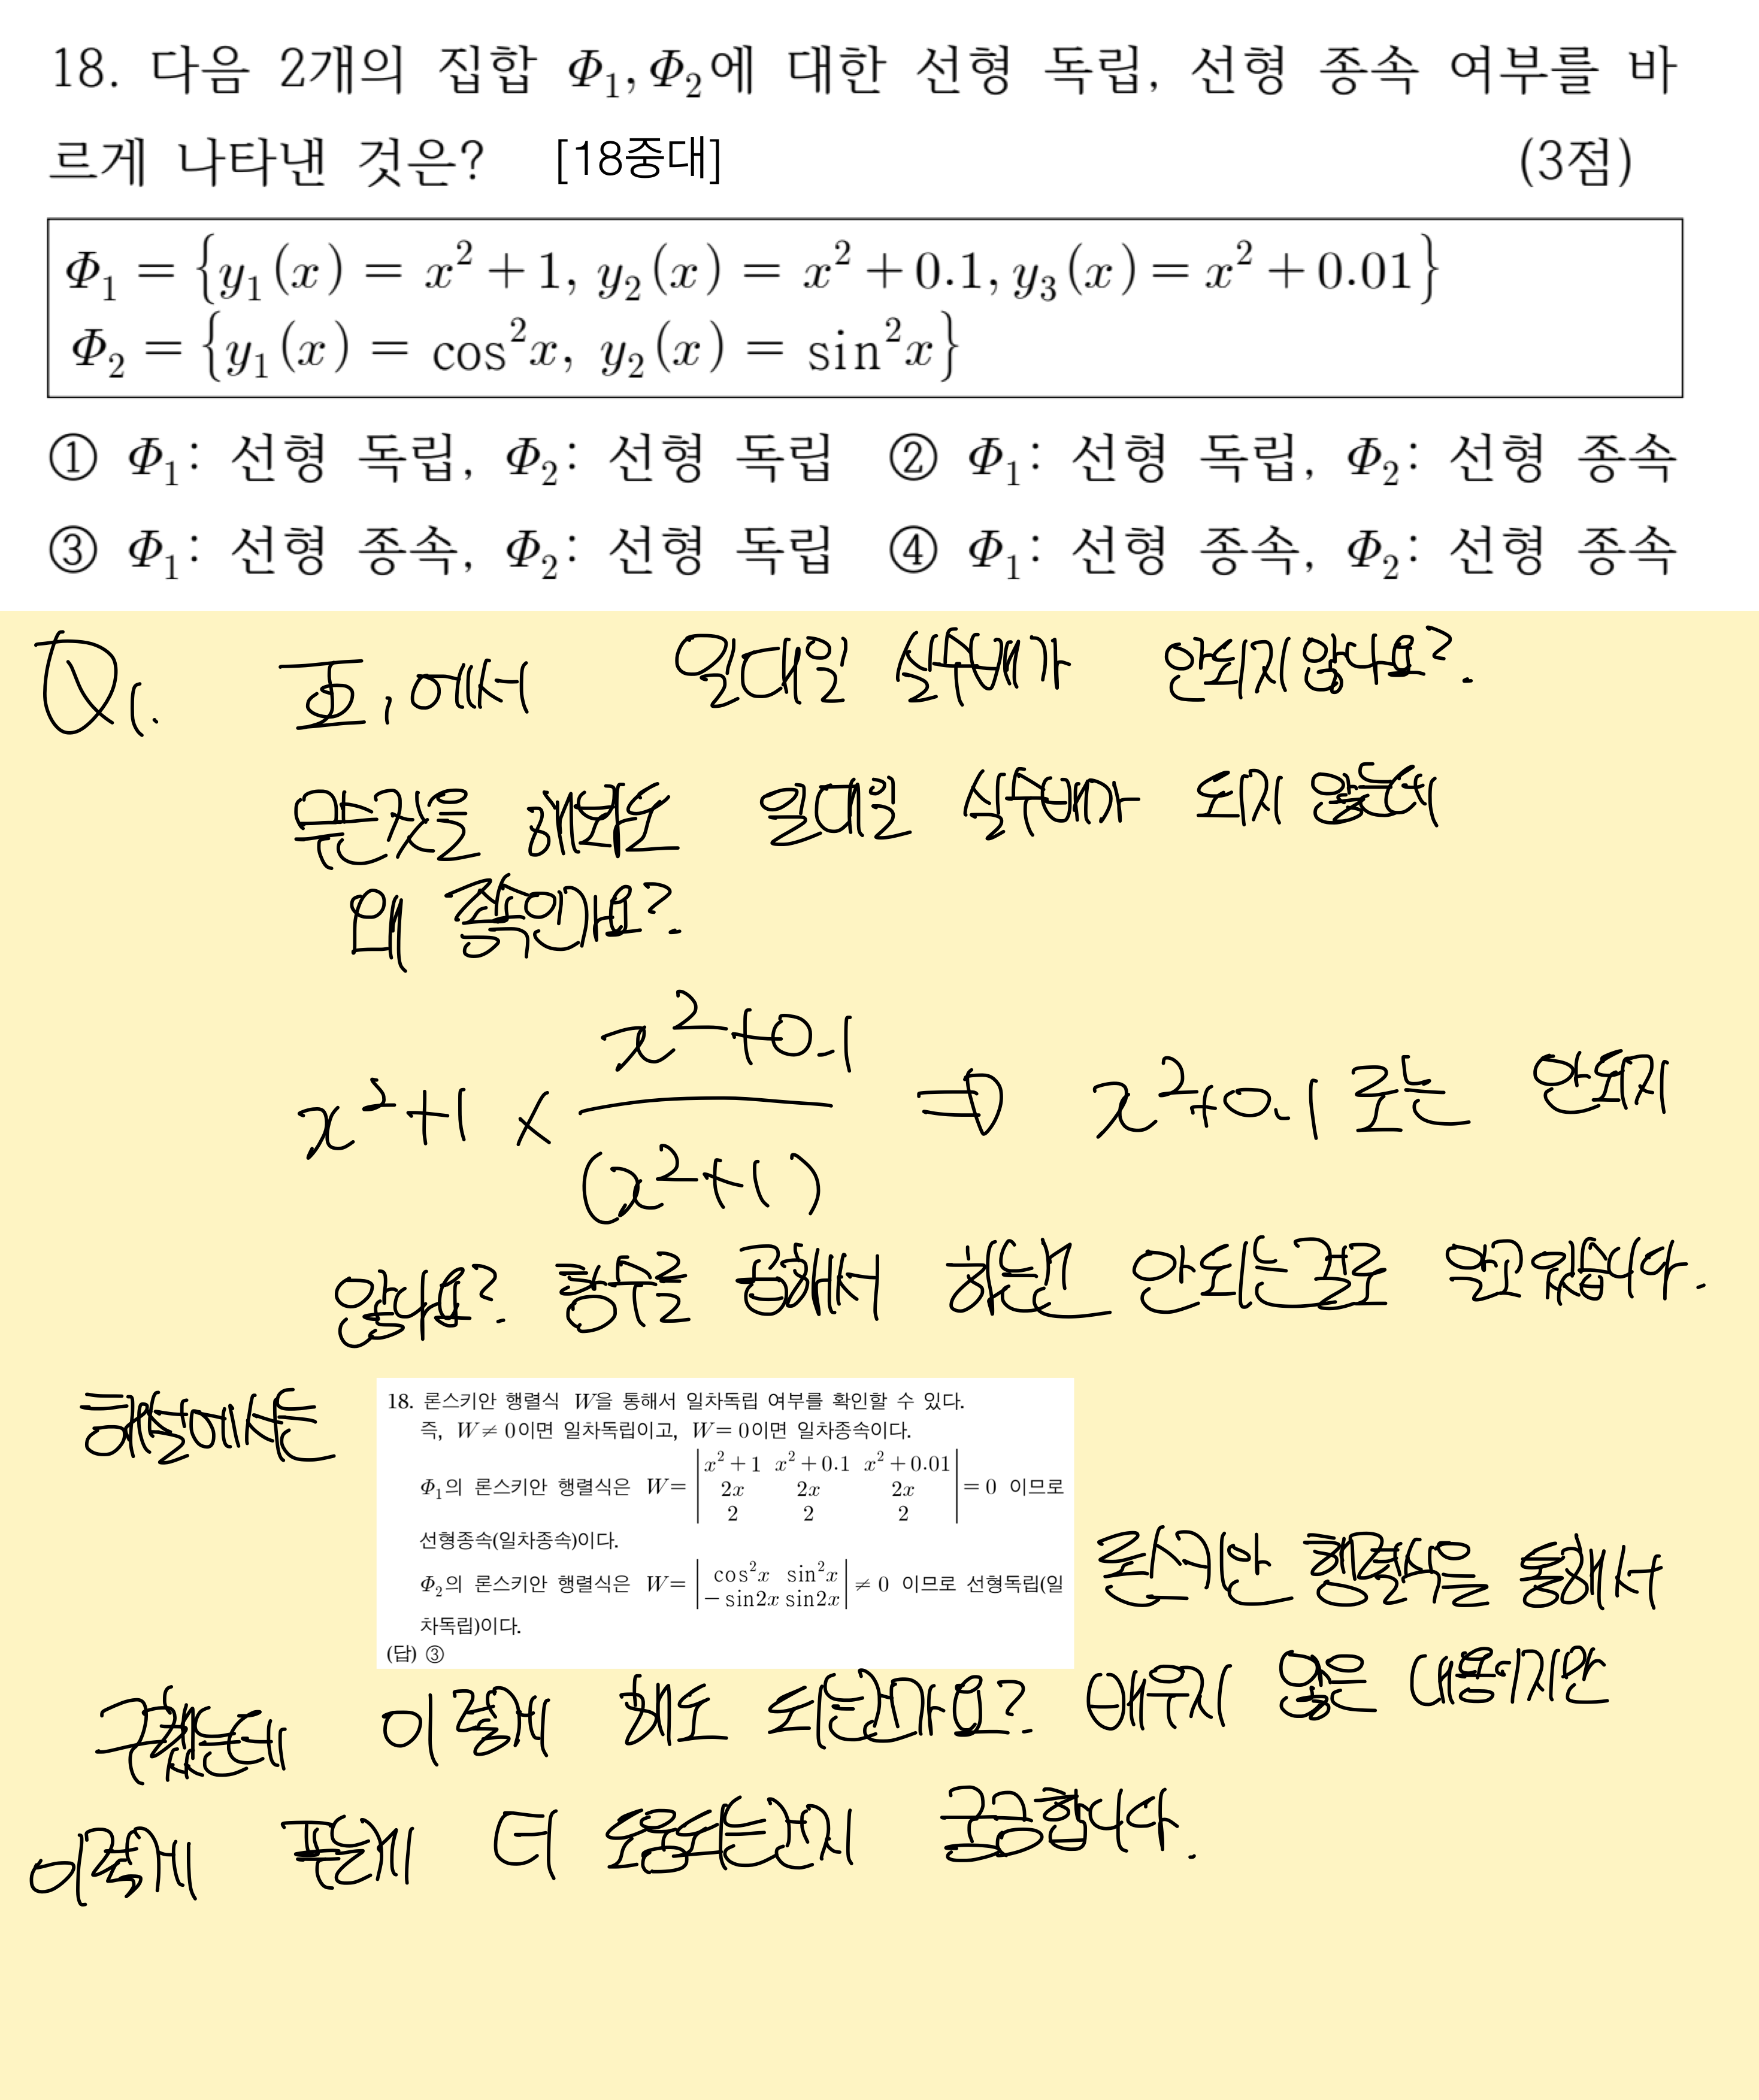 18. 다음 2개의 집합 Φ₁, Φ₂에 대한 선형 독립, 선형 종속 여부를 바
르게 나타낸 것은? [18중대] (3점)
Φ₁ = {y₁(x) = x² + 1, y₂(x) = x² + 0.1, y₃(x) = x² + 0.01}
Φ₂ = {y₁(x) = cos²x, y₂(x) = sin²x}
① Φ₁: 선형 독립, Φ₂: 선형 독립 ② Φ₁: 선형 독립, Φ₂: 선형 종속
③ Φ₁: 선형 종속, Φ₂: 선형 독립 ④ Φ₁: 선형 종속, Φ₂: 선형 종속
Q1. Φ₁에서 일대일 실수배가 안되지않나요?.
무슨것을 해봐도 일대일 실수배가 되지 않는데
왜 종속인가요?.
x²+1 × (x²+0.1)/(x²+1) ⇒ x²+0.1 로는 안되지
않나요?. 함수를 곱해서 하는건 안되는걸로 알고있습니다.
해설에서는
18. 론스키안 행렬식 W을 통해서 일차독립 여부를 확인할 수 있다.
즉, W≠0이면 일차독립이고, W=0이면 일차종속이다.
Φ₁의 론스키안 행렬식은 W= |x²+1 x²+0.1 x²+0.01
2x 2x 2x
2 2 2| =0 이므로
선형종속(일차종속)이다.
Φ₂의 론스키안 행렬식은 W= |cos²x sin²x
−sin2x sin2x| ≠0 이므로 선형독립(일
차독립)이다.
(답) ③
론스키안 행렬식을 통해서
구했는데 이렇게 해도 되는건가요?. 배우지 않은 내용이지만
이렇게 푸는게 더 도움되는건지 궁금합니다.